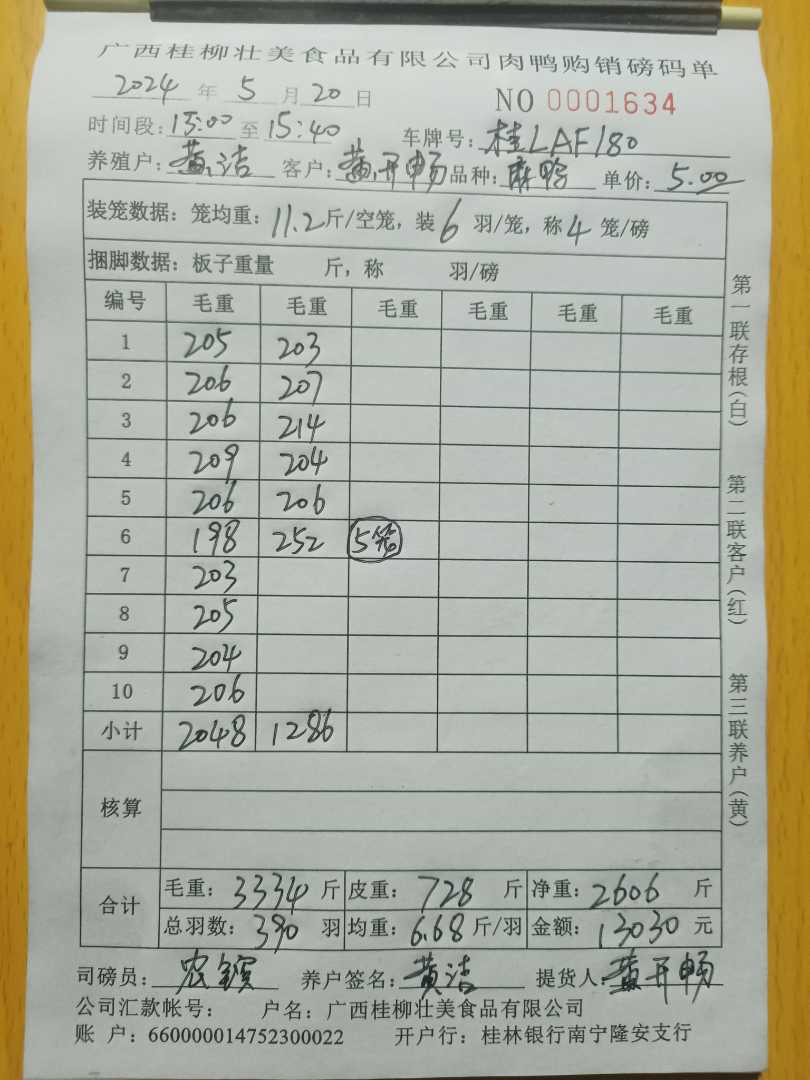 广西桂柳壮美食品有限公司肉鸭购销磅码单
2024 年 5 月 20 日 NO 0001634
时间段: 15:00 至 15:40 车牌号: 桂LAF180
养殖户: 黄洁 客户: 黄开畅 品种: 麻鸭 单价: 5.00
装笼数据: 笼均重: 11.2 斤/空笼, 装 6 羽/笼, 称 4 笼/磅
捆脚数据: 板子重量 斤, 称 羽/磅
编号 毛重 毛重 毛重 毛重 毛重 毛重
1 205 203
2 206 207
3 206 214
4 209 204
5 206 206
6 198 252 5笼
7 203
8 205
9 204
10 206
小计 2048 1286
核算
合计 毛重: 3334 斤 皮重: 728 斤 净重: 2606 斤
总羽数: 390 羽 均重: 6.68 斤/羽 金额: 13030 元
司磅员: 养户签名: 黄洁 提货人: 黄开畅
公司汇款帐号: 户名: 广西桂柳壮美食品有限公司
账 户: 660000014752300022 开户行: 桂林银行南宁隆安支行
第一联存根(白)
第二联客户(红)
第三联养户(黄)